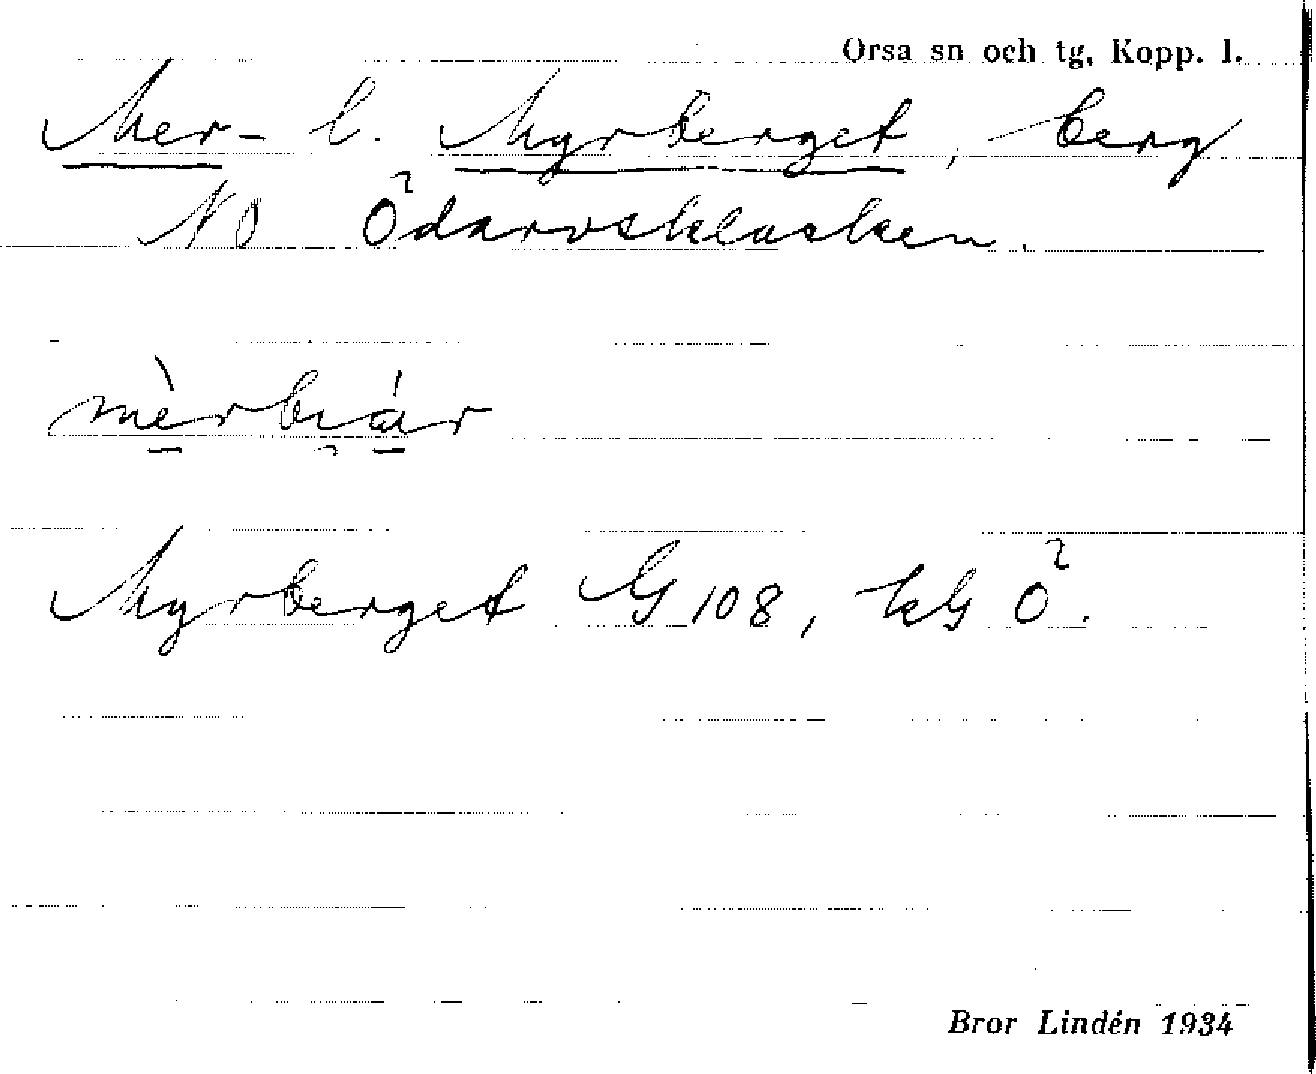 Orsa sn och tg, Kopp. l.
Mer- l. Myrberget, berg
NO Ödarvsklacken.
mèrbi̯ár
Myrberget G 108, kG Ö.
Bror Lindén 1934